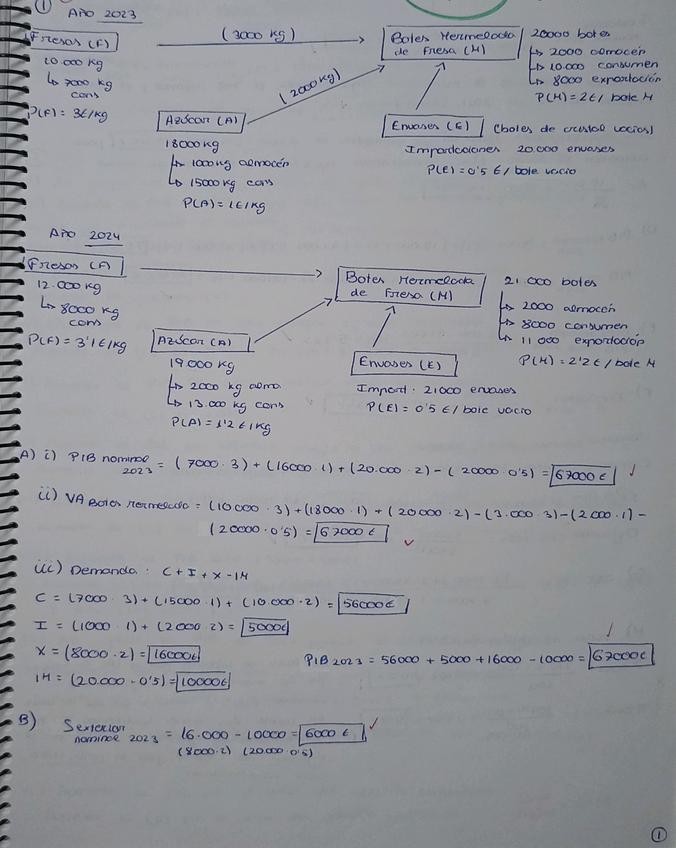 ① AÑO 2023
Fresas (F)
(3000 kg)
Botes Mermelada de Fresa (M)
20000 botes
↳ 2000 almacén
↳ 10.000 consumen
↳ 8000 exportación
P(M) = 2€/ bote M
10.000 kg
↳ 7000 kg cons
P(F) = 3€/kg
(2000 kg)
Azúcar (A)
18000 kg
↳ 1000 kg almacén
↳ 15000 kg cons
P(A) = 1€/kg
Envases (E) (botes de cristal vacíos)
Importaciones 20.000 envases
P(E) = 0'5 €/ bote vacío
AÑO 2024
Fresas (F)
12.000 kg
↳ 8000 kg cons
P(F) = 3'1€/kg
Botes Mermelada de Fresa (M)
21.000 botes
↳ 2000 almacén
↳ 8000 consumen
↳ 11 000 exportación
P(M) = 2'2€/ bote M
Azúcar (A)
19.000 kg
↳ 2000 kg alma.
↳ 13.000 kg cons
P(A) = 1'2 €/kg
Envases (E)
Import: 21000 envases
P(E) = 0'5 €/ bote vacío
A) i) PIB nominal 2023 = (7000 · 3) + (16000 · 1) + (20.000 · 2) - (20000 · 0'5) = 67000 € ✓
ii) VA Botes Mermelada = (10000 · 3) + (18000 · 1) + (20000 · 2) - (3.000 · 3) - (2000 · 1) -
(20000 · 0'5) = 67000 € ✓
iii) Demanda: C + I + X - IM
C = (7000 · 3) + (15000 · 1) + (10.000 · 2) = 56000€
I = (1000 · 1) + (2000 · 2) = 5000€
X = (8000 · 2) = 16000€
PIB 2023 = 56000 + 5000 + 16000 - 10000 = 67000€ ✓
IM = (20.000 · 0'5) = 10000€
B) S exterior nominal 2023 = 16.000 - 10000 = 6000 € ✓
(8000·2) (20000·0'5)
①